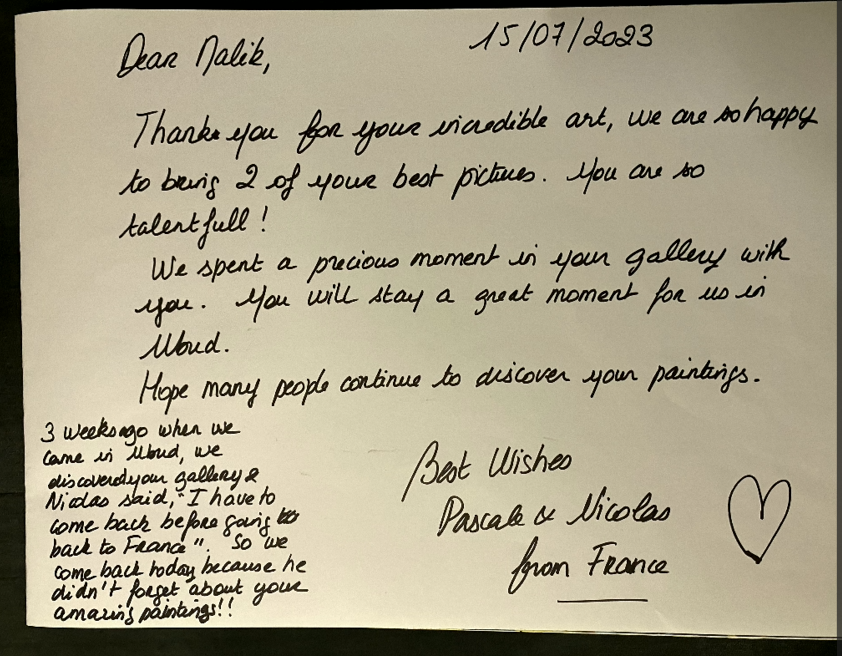 15/07/2023
Dear Malik,
Thank you for your incredible art, we are so happy
to bring 2 of your best pictures. You are so
talentfull !
We spent a precious moment in your gallery with
you. You will stay a great moment for us in
Ubud.
Hope many people continue to discover your paintings.
3 weeks ago when we
came in Ubud, we
discovered your gallery &
Nicolas said, "I have to
come back before going to
back to France". So we
come back today because he
didn't forget about your
amazing paintings!!
Best Wishes
Pascale & Nicolas
from France